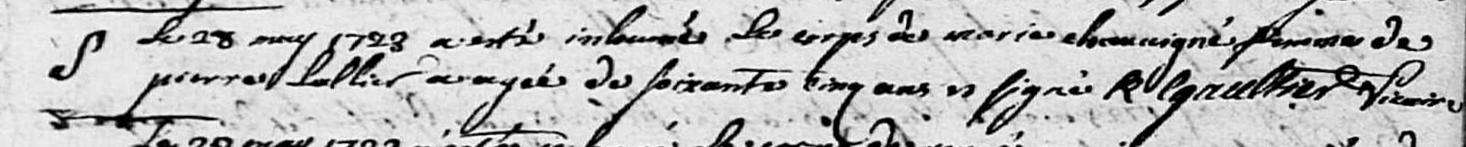 S Le 28 may 1723 a esté inhumée le corps de marie chauvigné femme de
pierre Lallier aagée de soixante cinq ans signé R Gaultier vicaire
Le 28 may 1723 a esté le corps de